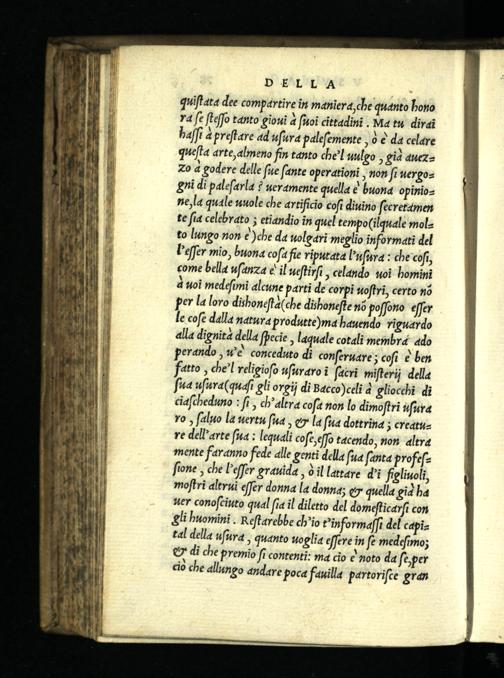 DELLA
quistata dee compartire in maniera, che quanto hono
ra se stesso tanto gioui à suoi cittadini. Ma tu dirai
hassi à prestare ad usura palesemente, ò è da celare
questa arte, almeno fin tanto che'l uulgo, già auez=
zo a godere delle sue sante operationi, non si uergo=
gni di palesarla? ueramente quella è buona opinio=
ne, la quale uuole che artificio cosi diuino secretamen
te sia celebrato; etiandio in quel tempo (ilquale mol=
to lungo non è) che da uolgari meglio informati del
l'esser mio, buona cosa fie riputata l'usura: che cosi,
come bella usanza è il uestirsi, celando uoi homini
à uoi medesimi alcune parti de corpi uostri, certo nō
per la loro dishonestà (che dishoneste nō possono esser
le cose dalla natura produtte) ma hauendo riguardo
alla dignità della specie, laquale cotali membra ado
perando, u'è conceduto di conseruare; cosi è ben
fatto, che'l religioso usuraro i sacri misterij della
sua usura (quasi gli orgij di Bacco) celi à gliocchi di
ciascheduno: si, ch'altra cosa non lo dimostri usura
ro, saluo la uertu sua, & la sua dottrina; creatu=
re dell'arte sua: lequali cose, esso tacendo, non altra
mente faranno fede alle genti della sua santa profes=
sione, che l'esser grauida, ò il lattare d'i figliuoli,
mostri altrui esser donna la donna; & quella già ha
uer conosciuto qual sia il diletto del domesticarsi con
gli huomini. Restarebbe ch'io t'informassi del capi=
tal della usura, quanto uoglia essere in se medesimo;
& di che premio si contenti: ma cio è noto da se, per
ciò che allungo andare poca fauilla partorisce gran